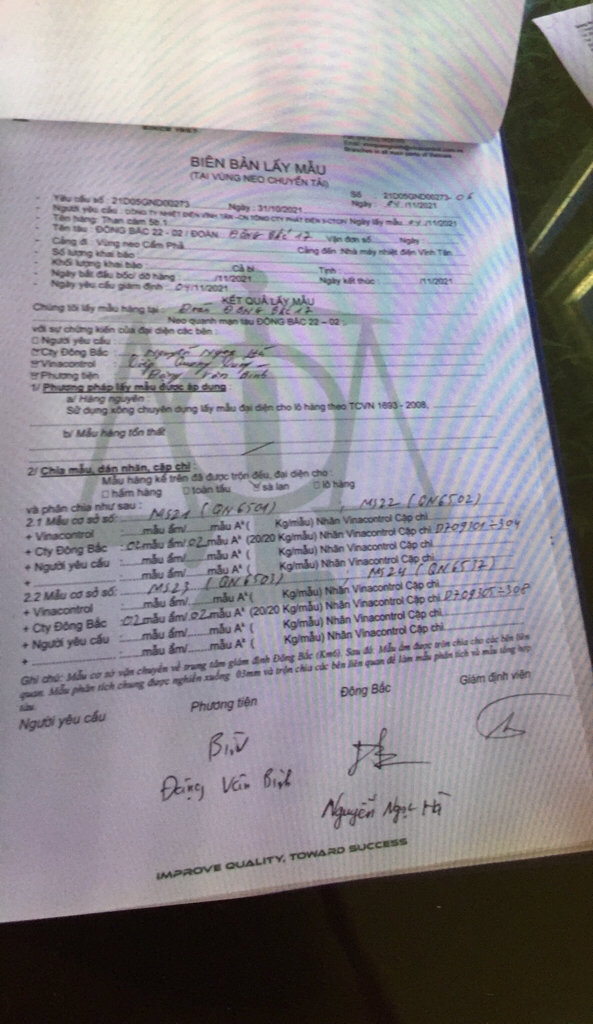 SINCE 1957
BIÊN BẢN LẤY MẪU
(TẠI VÙNG NEO CHUYỂN TẢI)
Yêu cầu số : 21D05GND00273 Số : 21D05GND00273- 06
Người yêu cầu : CÔNG TY NHIỆT ĐIỆN VĨNH TÂN -CN TỔNG CTY PHÁT ĐIỆN 3-CTCP
Ngày : 31/10/2021 Ngày : 04 /11/2021
Tên hàng: Than cám 5b.1 Ngày lấy mẫu: 04 /11/2021
Tên tàu : ĐÔNG BẮC 22 - 02 / ĐOÀN: ĐÔNG BẮC 17 Vận đơn số: Ngày :
Cảng đi : Vùng neo Cẩm Phả Cảng đến: Nhà máy nhiệt điện Vĩnh Tân.
Số lượng khai báo :
Khối lượng khai báo : Cả bì : Tịnh :
Ngày bắt đầu bốc/ dỡ hàng : /11/2021 Ngày kết thúc : /11/2021
Ngày yêu cầu giám định : 04/11/2021
KẾT QUẢ LẤY MẪU
Chúng tôi lấy mẫu hàng tại : Đoàn ĐÔNG BẮC 17
Neo quanh mạn tàu ĐÔNG BẮC 22 - 02
với sự chứng kiến của đại diện các bên :
Người yêu cầu :
Cty Đông Bắc : Nguyễn Ngọc Hà
Vinacontrol :
Phương tiện : Đặng Văn Bình
1/ Phương pháp lấy mẫu được áp dụng :
a/ Hàng nguyên :
Sử dụng xông chuyên dụng lấy mẫu đại diện cho lô hàng theo TCVN 1693 - 2008,
b/ Mẫu hàng tổn thất
2/ Chia mẫu, dán nhãn, cặp chì :
Mẫu hàng kể trên đã được trộn đều, đại diện cho :
hầm hàng toàn tàu sà lan lô hàng
và phân chia như sau :
2.1 Mẫu cơ sở số: MS21 ( QN6501) , MS22 ( QN6502)
+ Vinacontrol : mẫu ẩm/ mẫu A* ( Kg/mẫu) Nhãn Vinacontrol Cặp chì
+ Cty Đông Bắc : 02 mẫu ẩm/ 02 mẫu A* (20/20 Kg/mẫu) Nhãn Vinacontrol Cặp chì D709301÷304
+ Người yêu cầu : mẫu ẩm/ mẫu A* ( Kg/mẫu) Nhãn Vinacontrol Cặp chì
+ : mẫu ẩm/ mẫu A* ( Kg/mẫu) Nhãn Vinacontrol Cặp chì
2.2 Mẫu cơ sở số: MS23 ( QN6503) , MS24 (QN6517)
+ Vinacontrol : mẫu ẩm/ mẫu A* ( Kg/mẫu) Nhãn Vinacontrol Cặp chì
+ Cty Đông Bắc : 02 mẫu ẩm/ 02 mẫu A* (20/20 Kg/mẫu) Nhãn Vinacontrol Cặp chì D709305÷308
+ Người yêu cầu : mẫu ẩm/ mẫu A* ( Kg/mẫu) Nhãn Vinacontrol Cặp chì
+ : mẫu ẩm/ mẫu A* ( Kg/mẫu) Nhãn Vinacontrol Cặp chì
Ghi chú: Mẫu cơ sở vận chuyển về trung tâm giám định Đông Bắc (Km6). Sau đó: Mẫu ẩm được trộn chia cho các bên liên
quan. Mẫu phân tích chung được nghiền xuống 03mm và trộn chia các bên liên quan để làm mẫu phân tích và mẫu tổng hợp
tàu.
Người yêu cầu Phương tiện Đông Bắc Giám định viên
Đặng Văn Bình
Nguyễn Ngọc Hà
IMPROVE QUALITY, TOWARD SUCCESS